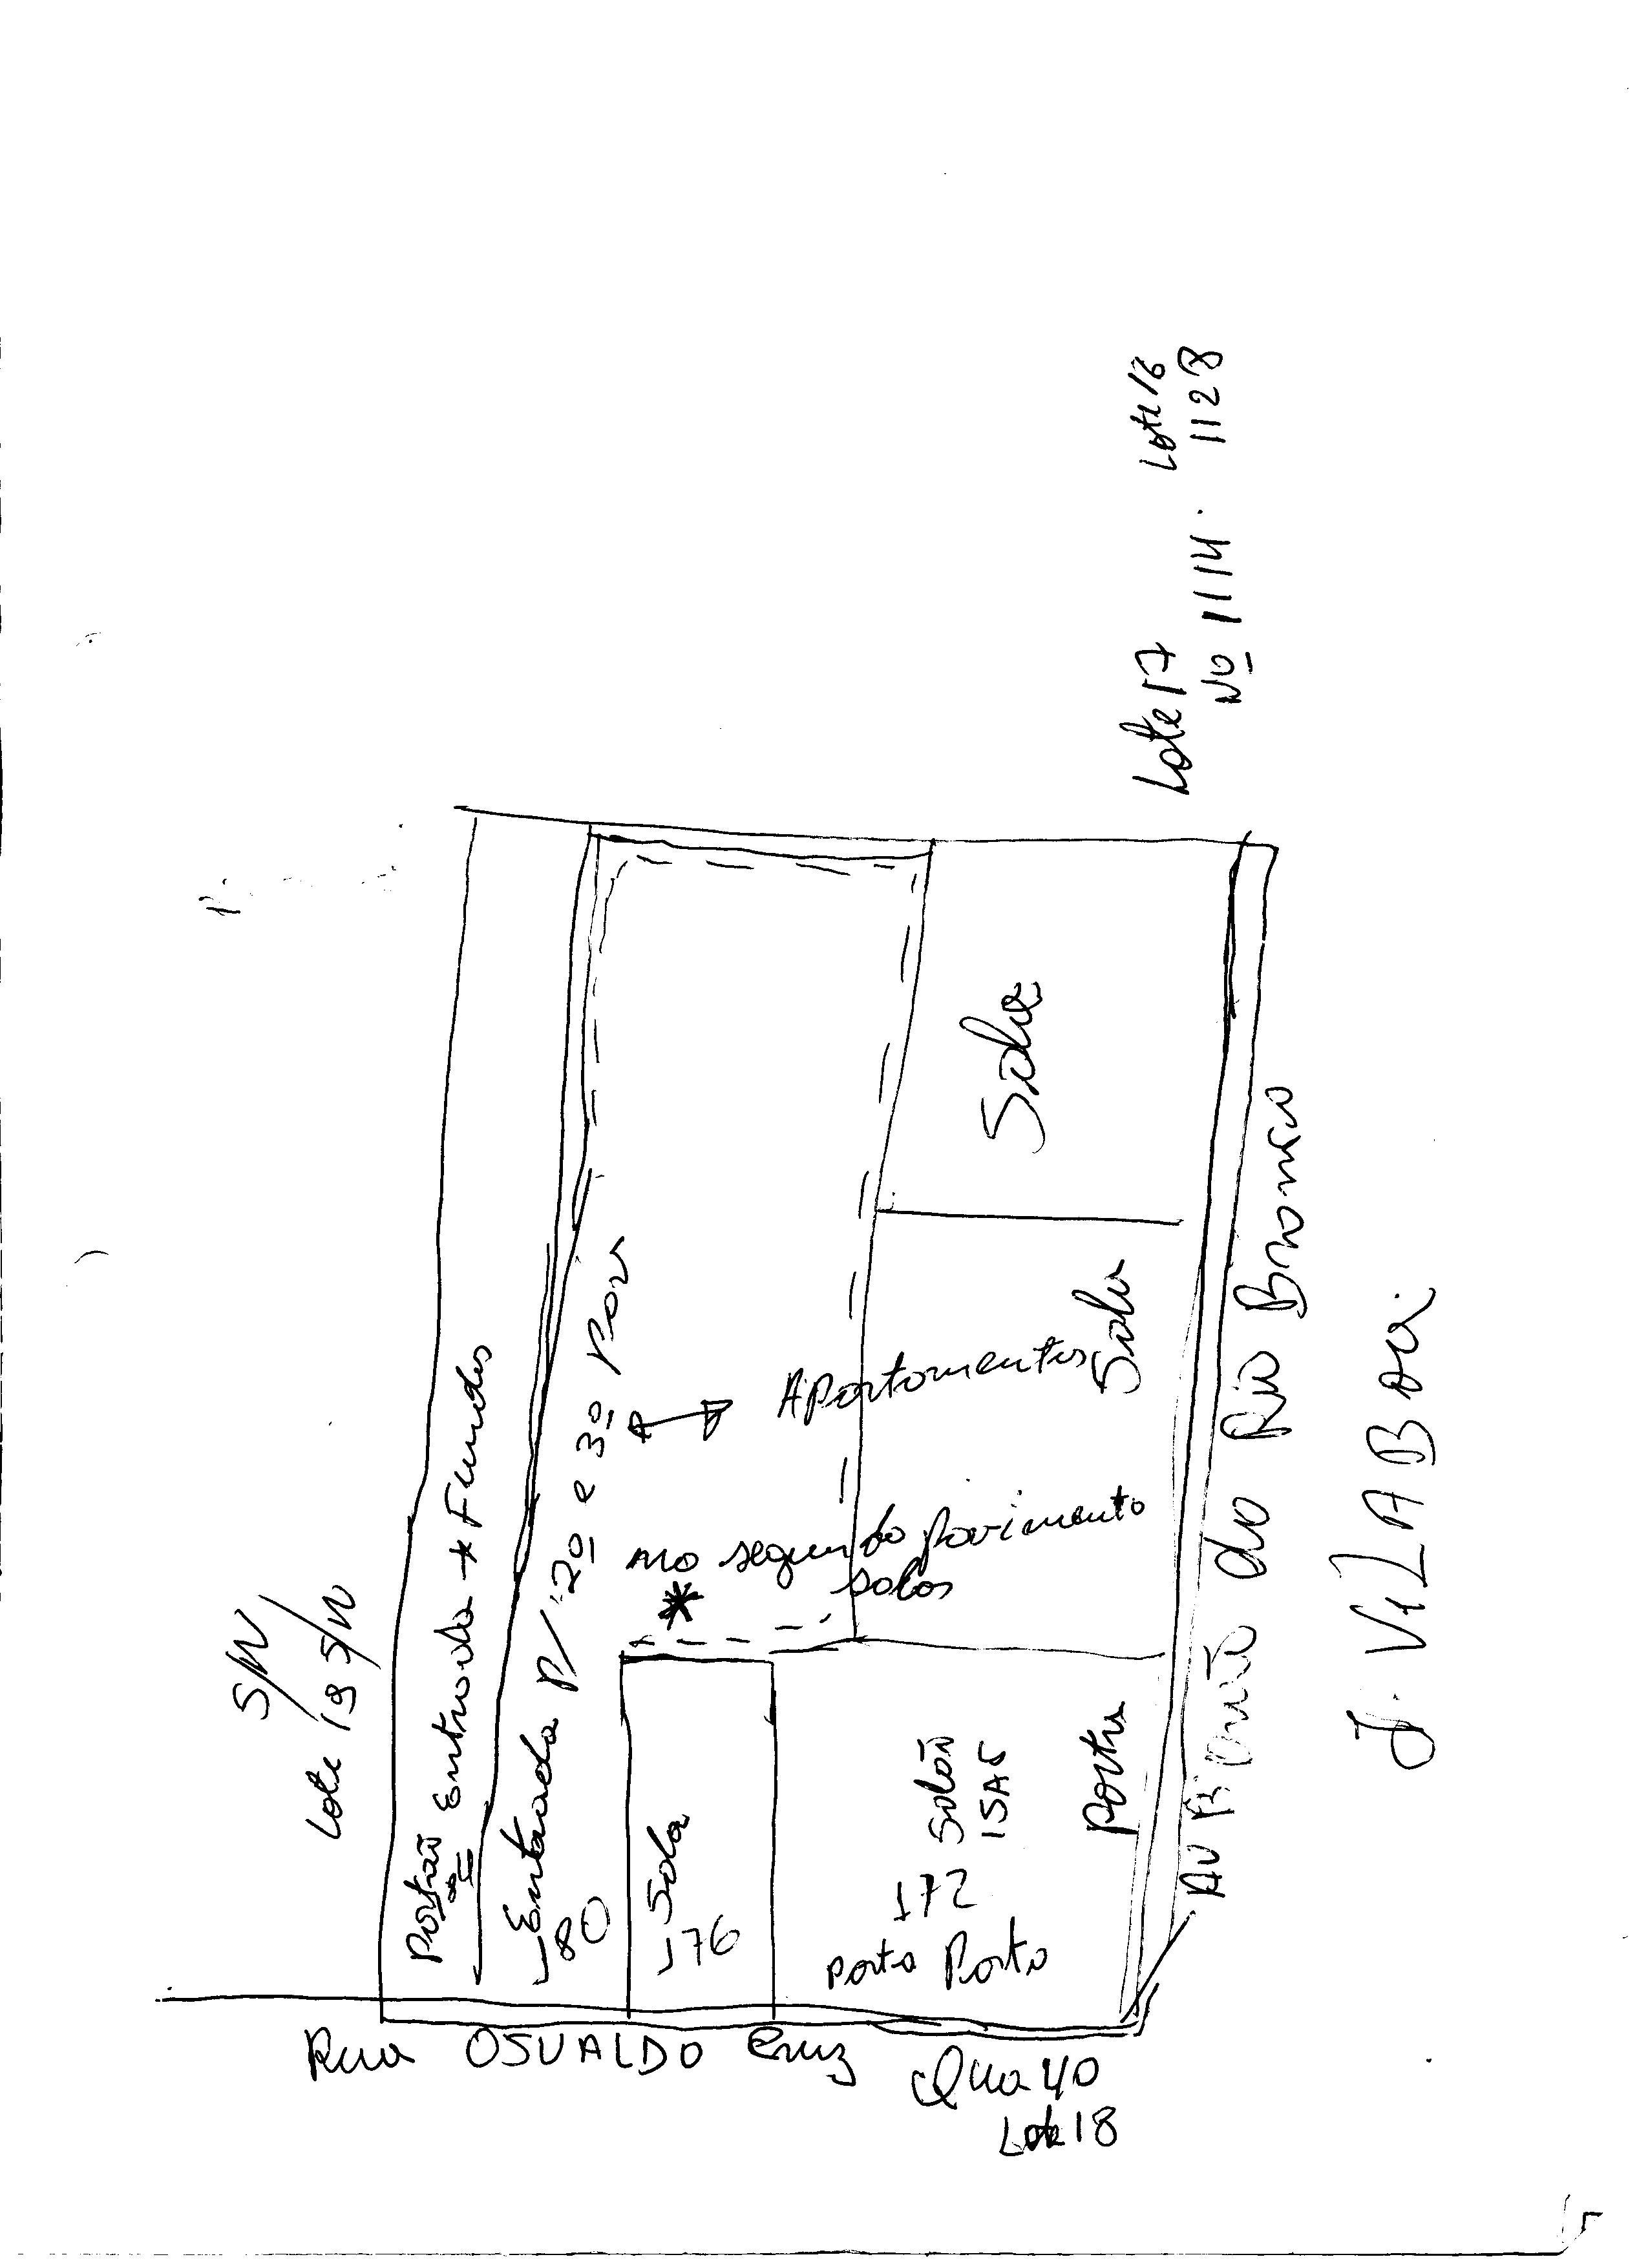 S/N
Lote 19 S/N
Portão Entrada + Fundos
Entrada P/ 2º e 3º Pav
80
Apartamentos
* no segundo pavimento
salas
Sala
176
Sala
Sala
Salão
172
Porta Porta
Porta
Lote 17 Lote 16
Nº 1114. 1128
Av Barão do Rio Branco
J. VilA Boa.
Rua OSVALDO Cruz
Qua 40
Lote 18